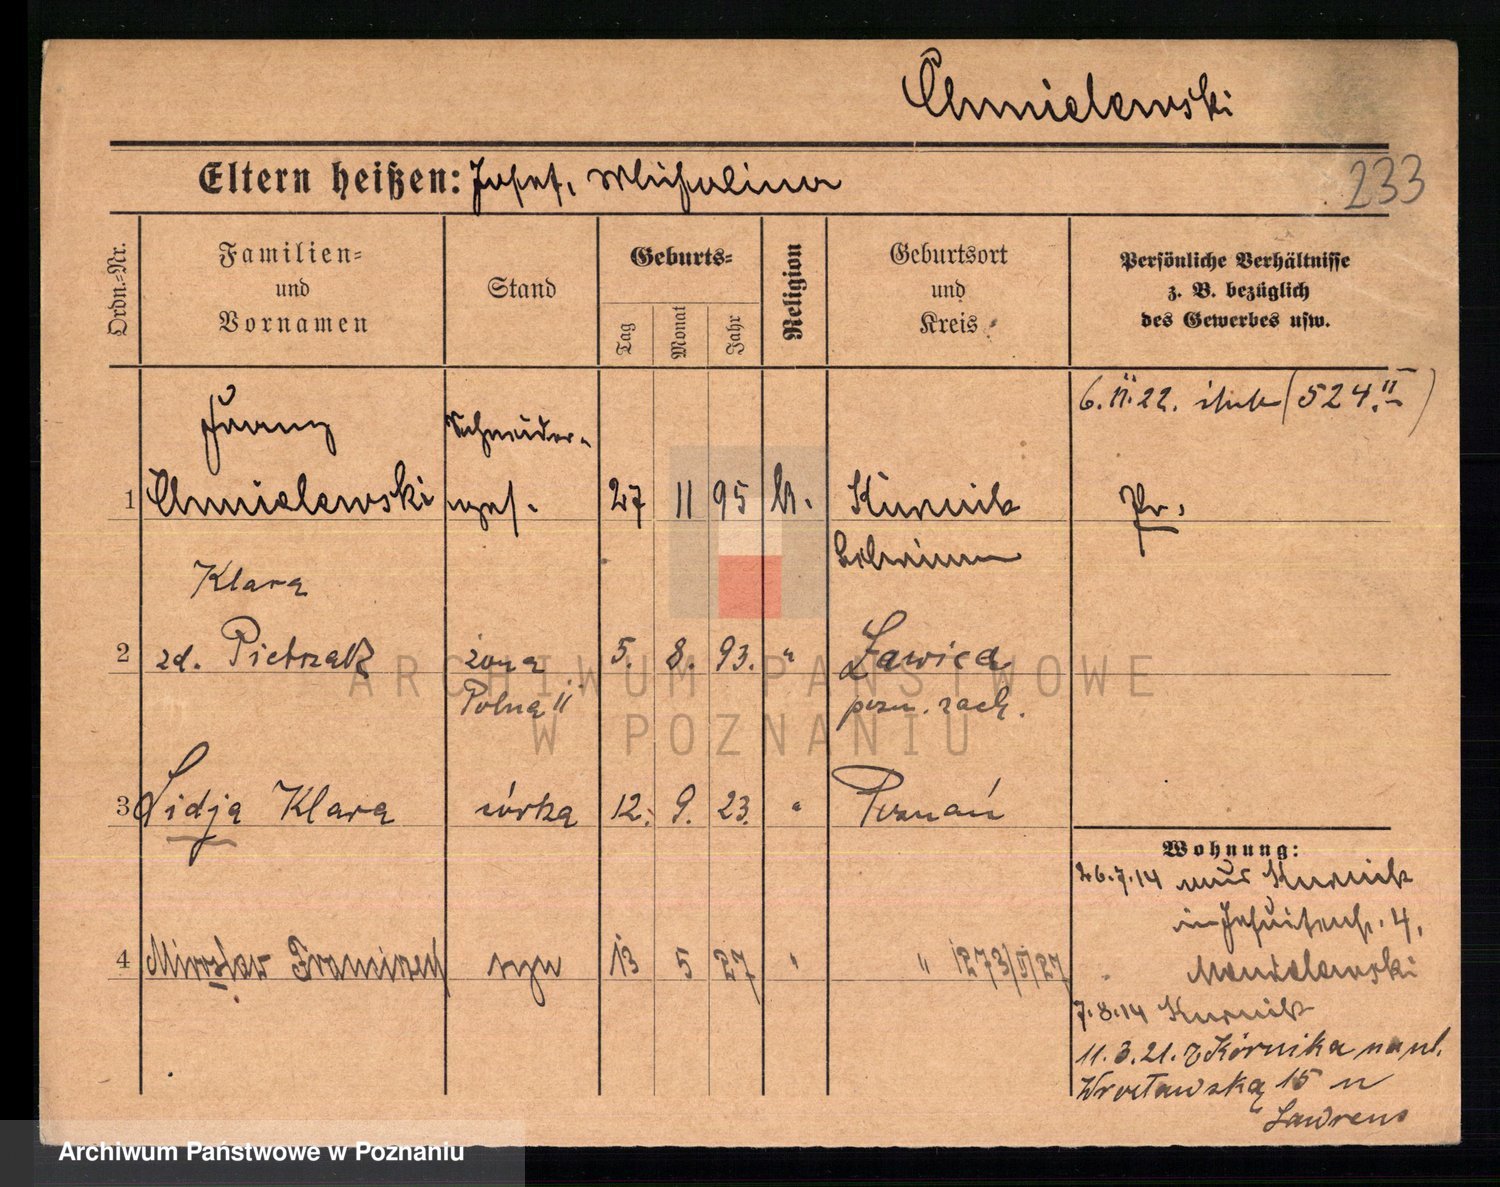 Chmielewski
Eltern heißen: Josef,
233
Ordn.-Nr.
Familien-
und
Vornamen
Stand
Geburts-
Tag
Monat
Jahr
Religion
Geburtsort
und
Kreis
Persönliche Verhältnisse
z. B. bezüglich
des Gewerbes usw.
6. 11. 22. (524. II)
Franz
Schneider-
1 Chmielewski 27 11 95 Kurnik
Pr.
Schrimm
Klara
2 zd. Pietrzak żona 5. 8. 93. " Ławica
Polna 11 pozn. zach.
3 Lidja Klara córka 12. 9. 23. " Poznań
Wohnung:
26.7.14 aus Kurnik
in Jesuitenstr. 4,
4 Mirosław Franciszek syn 13 5 27 " " 1273/V/27
7.8.14 Kurnik
11. 3. 21. z Kórnika na ul.
Wrocławską 15 u
Lawrenc
ARCHIWUM PAŃSTWOWE
W POZNANIU
Archiwum Państwowe w Poznaniu